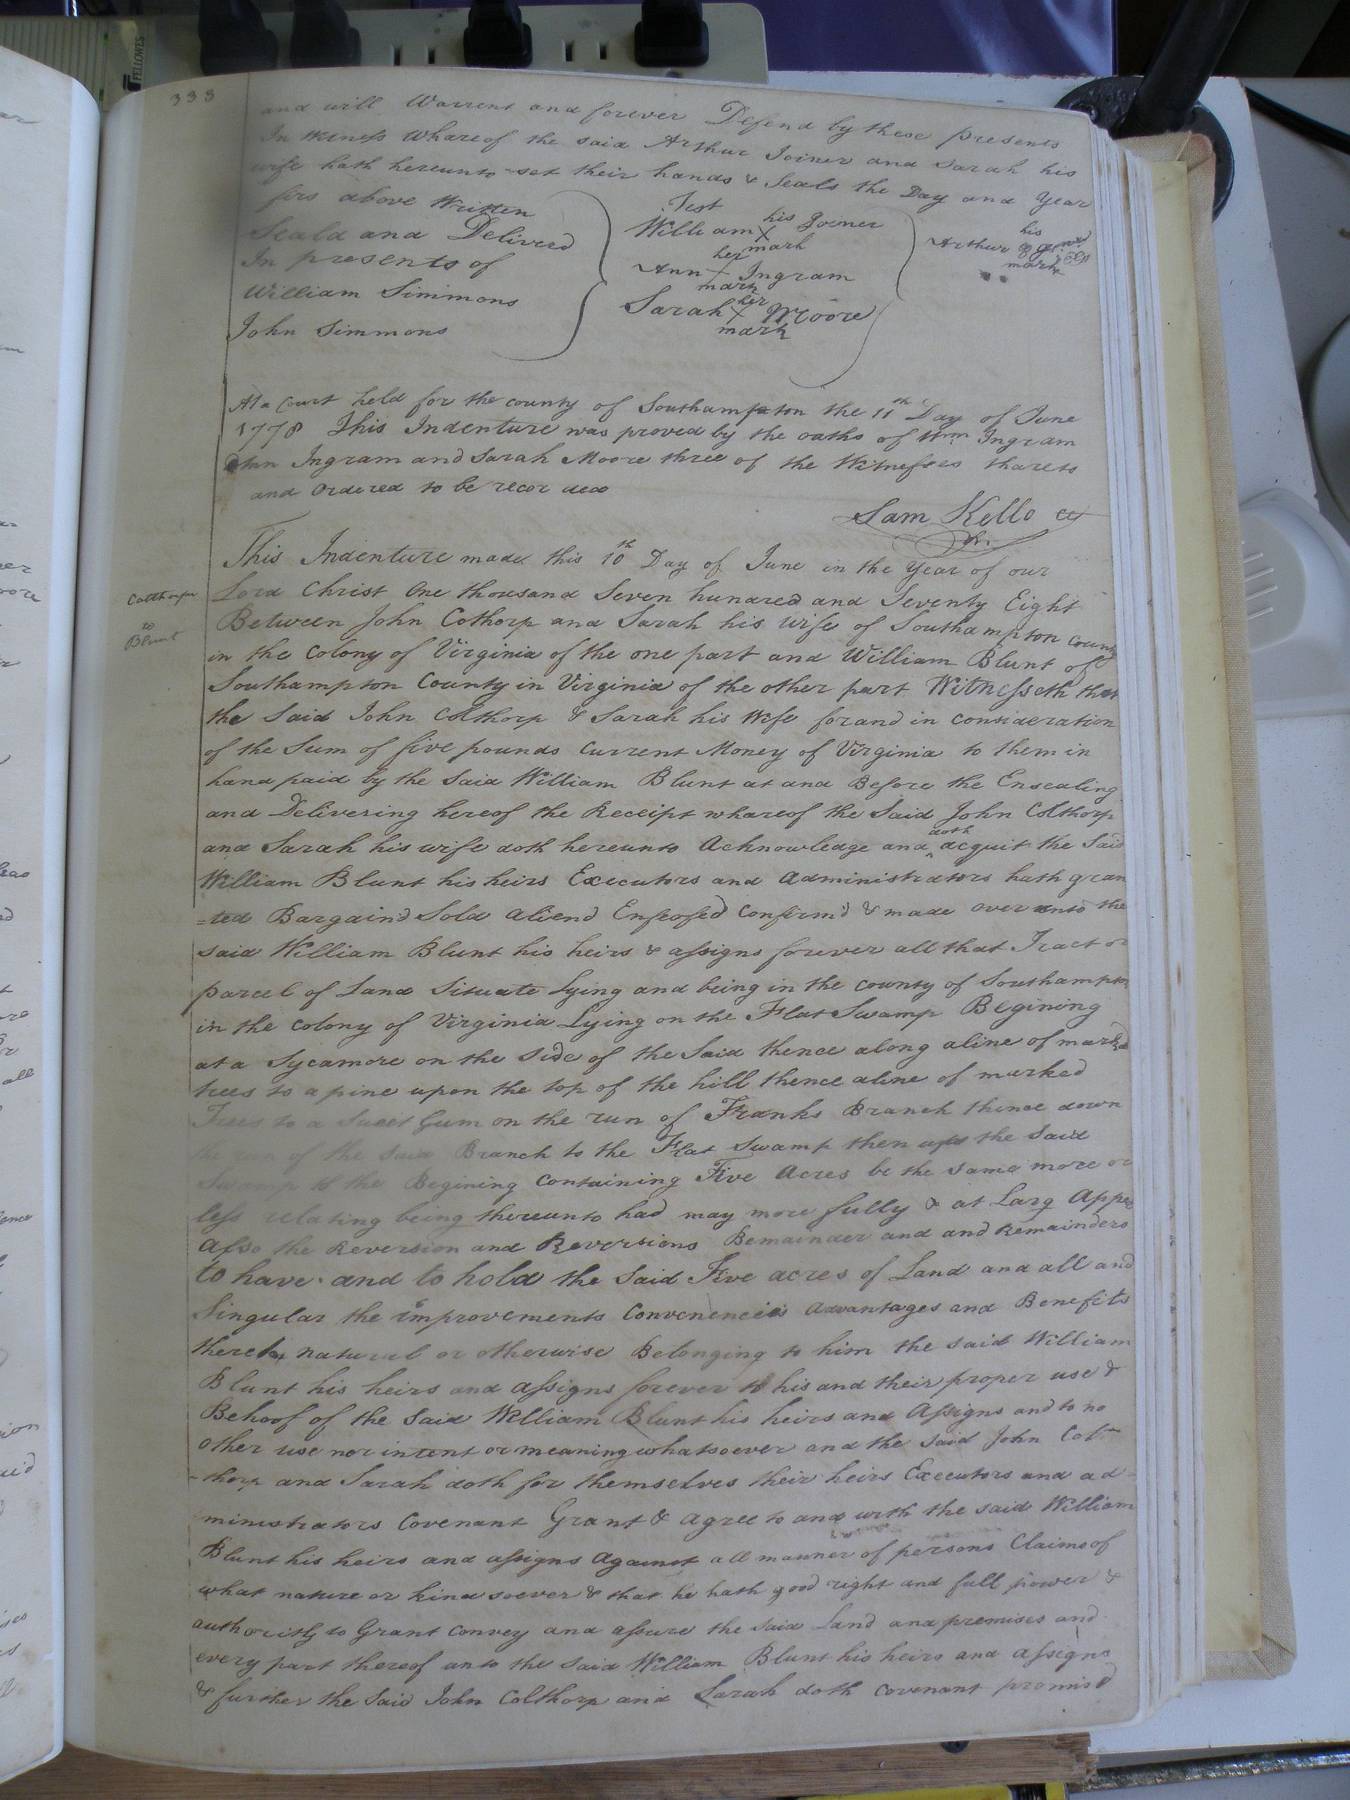 FELLOWES
333
and will Warrent and forever Defend by these presents
In Witness Whareof the said Arthur Joiner and Sarah his
wife hath hereunto set their hands & Seals the Day and Year
firs above Written
Seald and Deliverd
In presents of
William Simmons
John Simmons
Test
William his X mark Joiner
Ann her X mark Ingram
Sarah her X mark Moore
Arthur his mark
At a Court held for the county of Southampton the 11th Day of June
1778 This Indenture was proved by the oaths of Wm Ingram
Ann Ingram and Sarah Moore three of the Witnesses thareto
and Ordered to be recorded
Sam Kello
Calthorpe
to
Blunt
This Indenture made this 10th Day of June in the Year of our
Lord Christ One thousand Seven hundred and Seventy Eight
Between John Cothorp and Sarah his Wife of Southampton County
in the Colony of Virginia of the one part and William Blunt of
Southampton County in Virginia of the other part Witnesseth that
the Said John Colthorp & Sarah his Wife for and in consideration
of the Sum of five pounds Current Money of Virginia to them in
hand paid by the Said William Blunt at and Before the Ensealing
and Delivering hereof the Receipt whareof the Said John Colthorp
and Sarah his wife doth hereunto Acknowledge and doth acquit the Said
William Blunt his heirs Executors and Administrators hath gran
=ted Bargain'd Sold aliend Enfeofed Confirm'd & made over unto the
said William Blunt his heirs & assigns forever all that Tract or
parcel of Land Situate Lying and being in the county of Southampton
in the colony of Virginia Lying on the Flat Swamp Begining
at a Sycamore on the Side of the Said thence along a line of marked
trees to a pine upon the top of the hill thence a line of marked
Trees to a Sweet Gum on the run of Franks Branch thence down
the run of the Said Branch to the Flat Swamp then up the Said
Swamp to the Begining Containing Five Acres be the same more or
less relating being thereunto had may more fully & at Larg Appe
also the Reversion and Reversions Remainder and and Remainders
to have and to hold the Said Five acres of Land and all and
Singular the improvements Conveneneies Advantages and Benefits
thereby natural or otherwise Belonging to him the said William
Blunt his heirs and assigns forever to his and their proper use &
Behoof of the Said William Blunt his heirs and Assigns and to no
other use nor intent or meaning whatsoever and the Said John Col=
=thorp and Sarah doth for themselves their heirs Executors and ad=
ministrators Covenant Grant & agree to and with the said William
Blunt his heirs and assigns Against all manner of persons Claims of
what nature or kind soever & that he hath good right and full power &
authority to Grant Convey and assure the Said Land and premises and
every part thereof unto the Said William Blunt his heirs and assigns
& further the Said John Colthorp and Sarah doth Covenant promisd